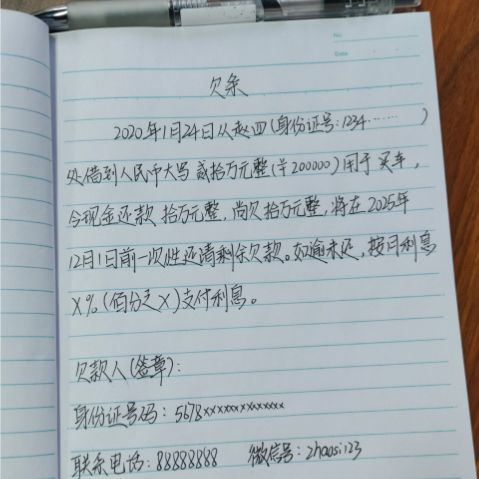 No.
Date
欠条
2020年1月24日从赵四(身份证号:1234……)
处借到人民币大写 贰拾万元整(¥200000)用于买车,
今现金还款 拾万元整,尚欠拾万元整,将在2025年
12月1日前一次性还清剩余欠款。如逾未还,按月利息
X%(佰分之X)支付利息。
欠款人(签章):
身份证号码:5678xxxxxxxxxxxxx
联系电话:88888888 微信号:zhaosi123